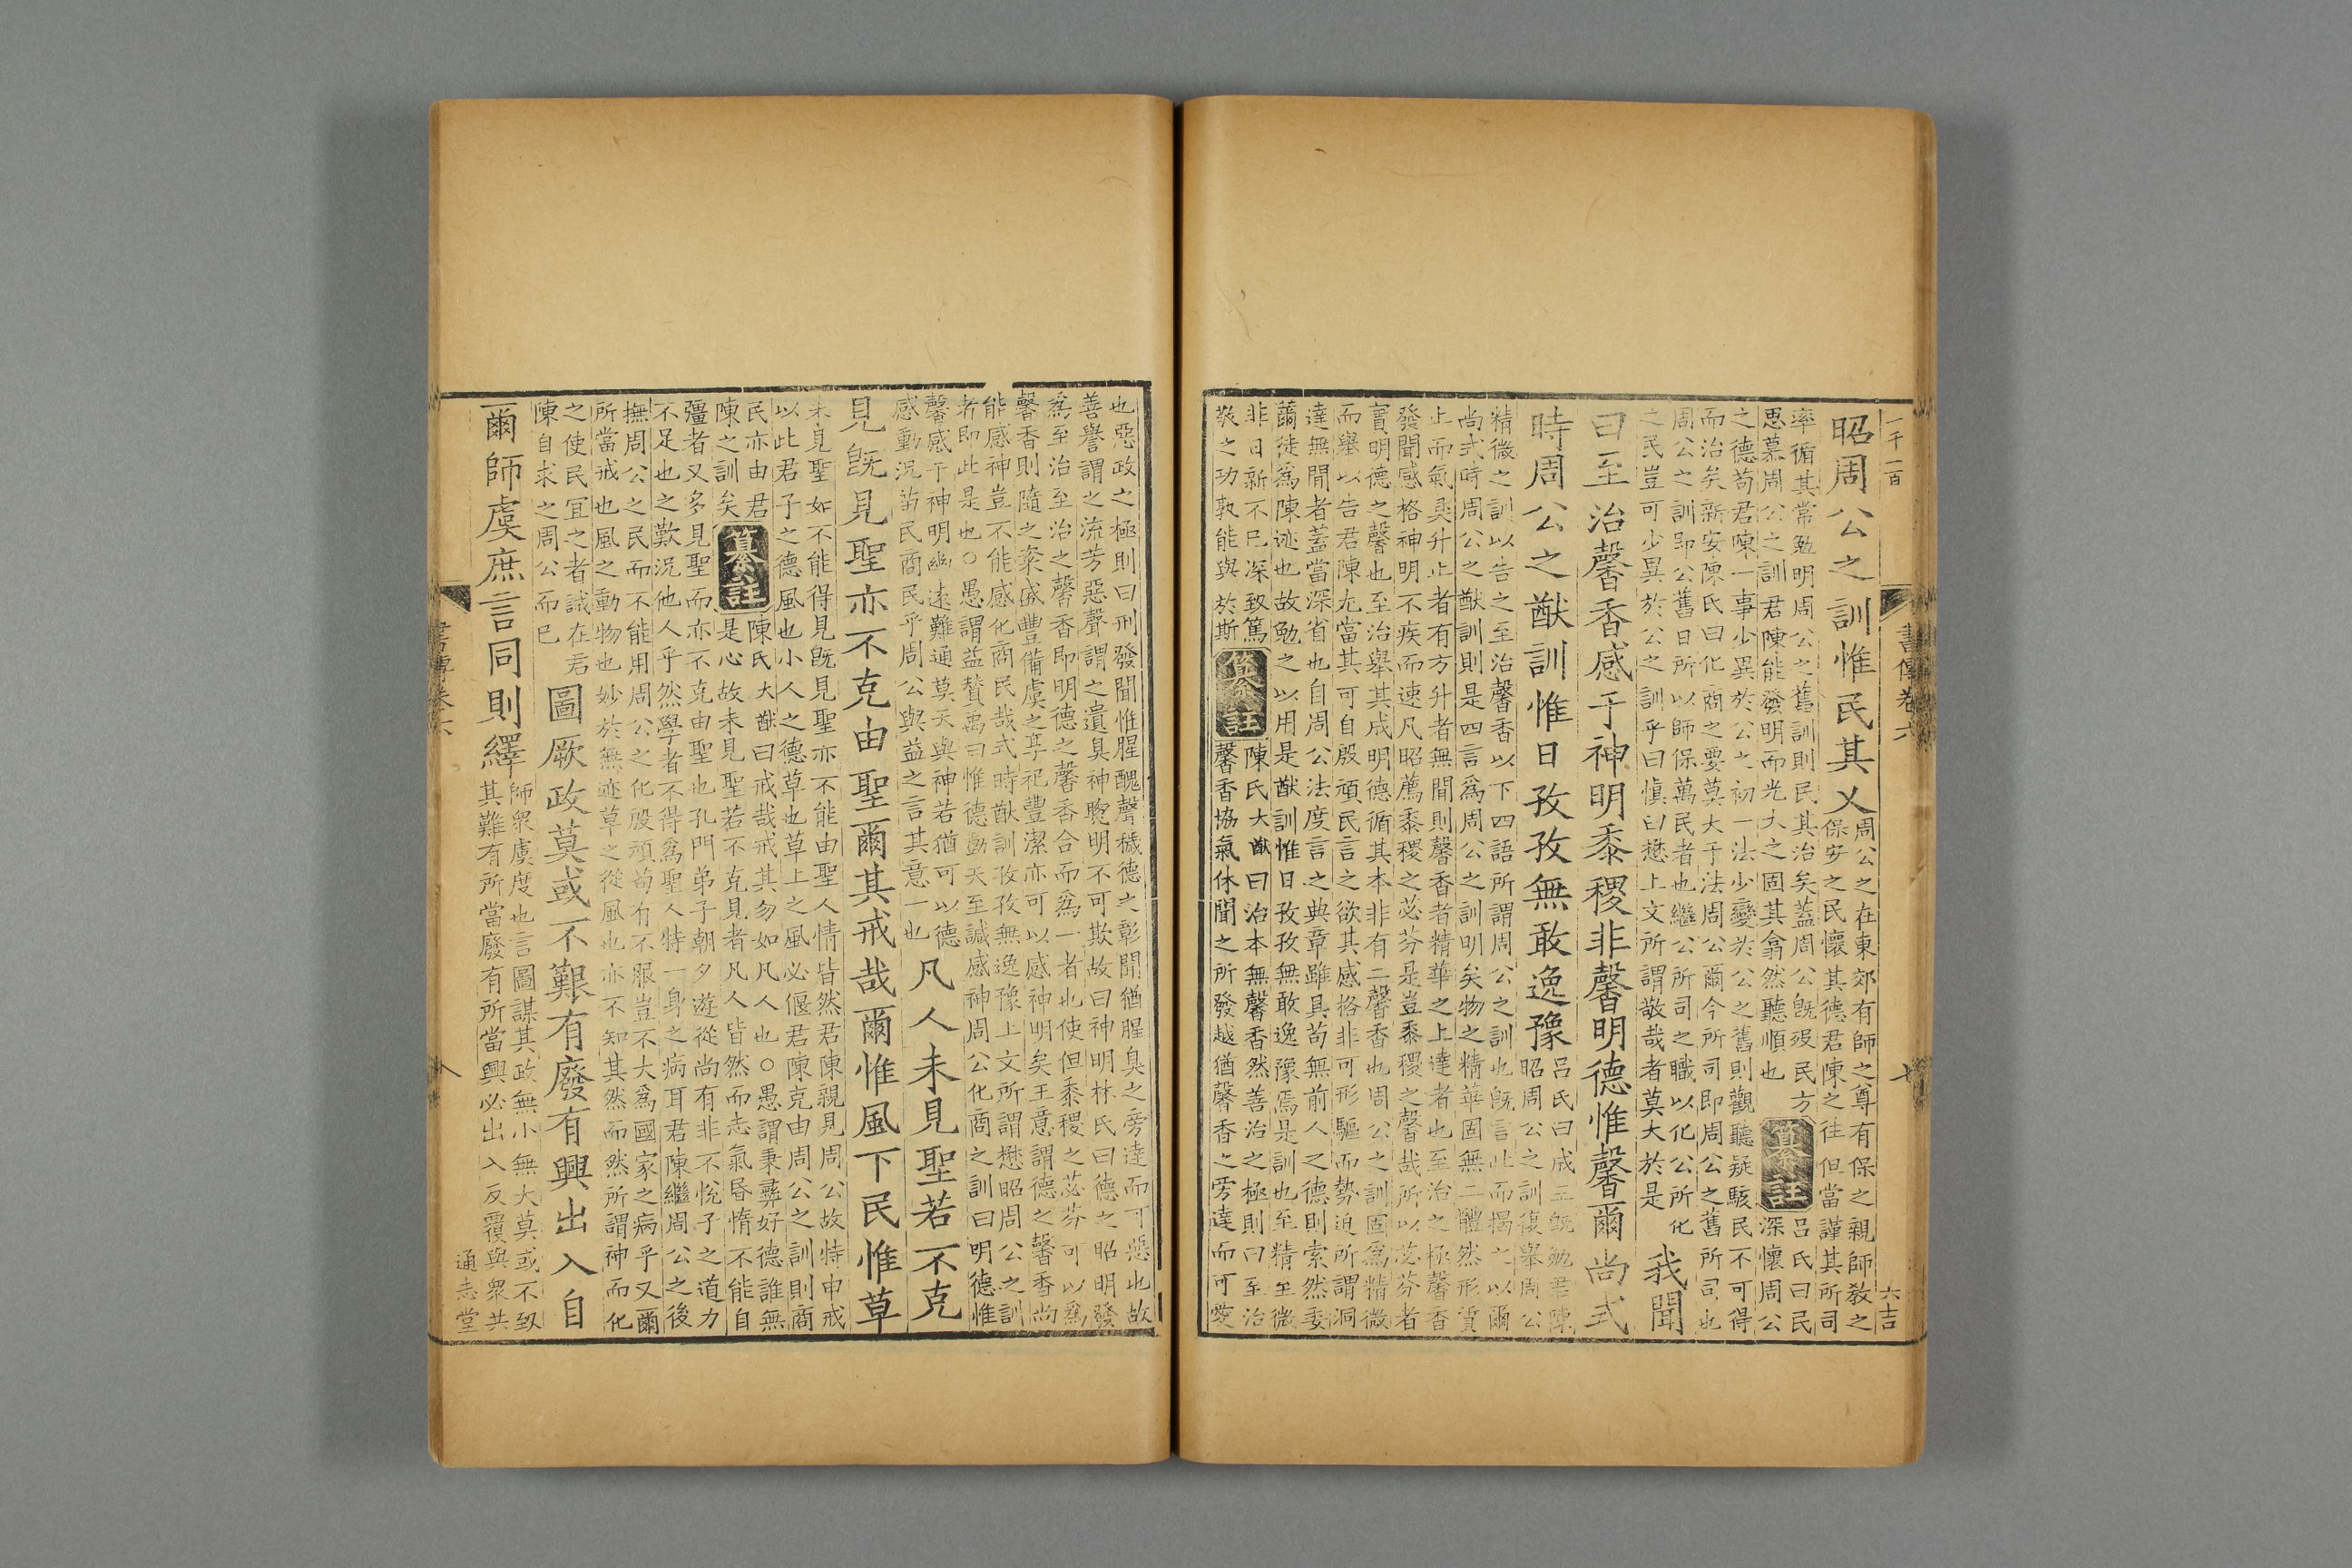 一千一百
書傳卷六
七
六吉
昭周公之訓惟民其乂
周公之在東郊有師之尊有保之親師敎之
保安之民懷其德君陳之往但當謹其所司
率循其常勉明周公之舊訓則民其治矣蓋周公旣歿民方
思慕周公之訓君陳能發明而光大之固其翕然聽順也
纂註
呂氏曰民
深懷周公
之德苟君陳一事少異於公之初一法少變於公之舊則觀聽疑駭民不可得
而治矣新安陳氏曰化商之要莫大于法周公爾今所司卽周公之舊所司也
周公之訓卽公舊日所以師保萬民者也繼公所司之職以化公所化
之民豈可少異於公之訓乎曰愼曰懋上文所謂敬哉者莫大於是
我聞
曰至治馨香感于神明黍稷非馨明德惟馨爾尚式
時周公之猷訓惟日孜孜無敢逸豫
呂氏曰成王旣勉君陳
昭周公之訓復舉周公
精微之訓以告之至治馨香以下四語所謂周公之訓也旣言此而揭之以爾
尚式時周公之猷訓則是四言爲周公之訓明矣物之精華固無二體然形質
止而氣臭升止者有方升者無間則馨香者精華之上達者也至治之極馨香
發聞感格神明不疾而速凡昭薦黍稷之苾芬是豈黍稷之馨哉所以苾芬者
實明德之馨也至治舉其成明德循其本非有二馨香也周公之訓固爲精微
而舉以告君陳尤當其可自殷頑民言之欲其感格非可形驅而勢迫所謂洞
達無間者蓋當深省也自周公法度言之典章雖具苟無前人之德則索然委
薾徒爲陳迹也故勉之以用是猷訓惟日孜孜無敢逸豫焉是訓也至精至微
非日新不已深致篤
敬之功孰能與於斯
纂註
陳氏大猷曰治本無馨香然善治之極則曰至治
馨香協氣休聞之所發越猶馨香之旁達而可愛
也惡政之極則曰刑發聞惟腥醜聲穢德之彰聞猶腥臭之旁達而可惡也故
善譽謂之流芳惡聲謂之遺臭神聰明不可欺故曰神明林氏曰德之昭明發
爲至治至治之馨香卽明德之馨香合而爲一者也使但黍稷之苾芬可以爲
馨香則隨之粢盛豐備虞之享祀豐潔亦可以感神明矣王意謂德之馨香尚
能感神豈不能感化商民哉式時猷訓孜孜無逸豫上文所謂懋昭周公之訓
者卽此是也○愚謂益贊禹曰惟德動天至諴感神周公化商之訓曰明德惟
馨感于神明幽遠難通莫天與神若猶可以德
感動況苗民商民乎周公與益之言其意一也
凡人未見聖若不克
見旣見聖亦不克由聖爾其戒哉爾惟風下民惟草
未見聖如不能得見旣見聖亦不能由聖人情皆然君陳親見周公故特申戒
以此君子之德風也小人之德草也草上之風必偃君陳克由周公之訓則商
民亦由君
陳之訓矣
纂註
陳氏大猷曰戒哉戒其勿如凡人也○愚謂秉彝好德誰無
是心故未見聖若不克見者凡人皆然而志氣昏惰不能自
彊者又多見聖而亦不克由聖也孔門弟子朝夕遊從尚有非不悅子之道力
不足也之歎況他人乎然學者不得爲聖人特一身之病耳君陳繼周公之後
撫周公之民而不能用周公之化殷頑苟有不服豈不大爲國家之病乎又爾
所當戒也風之動物也妙於無迹草之從風也亦不知其然而然所謂神而化
之使民宜之者誠在君
陳自求之周公而已
圖厥政莫或不艱有廢有興出入自
爾師虞庶言同則繹
師衆虞度也言圖謀其政無小無大莫或不致
其難有所當廢有所當興必出入反覆與衆共
書傳卷六
八
通志堂